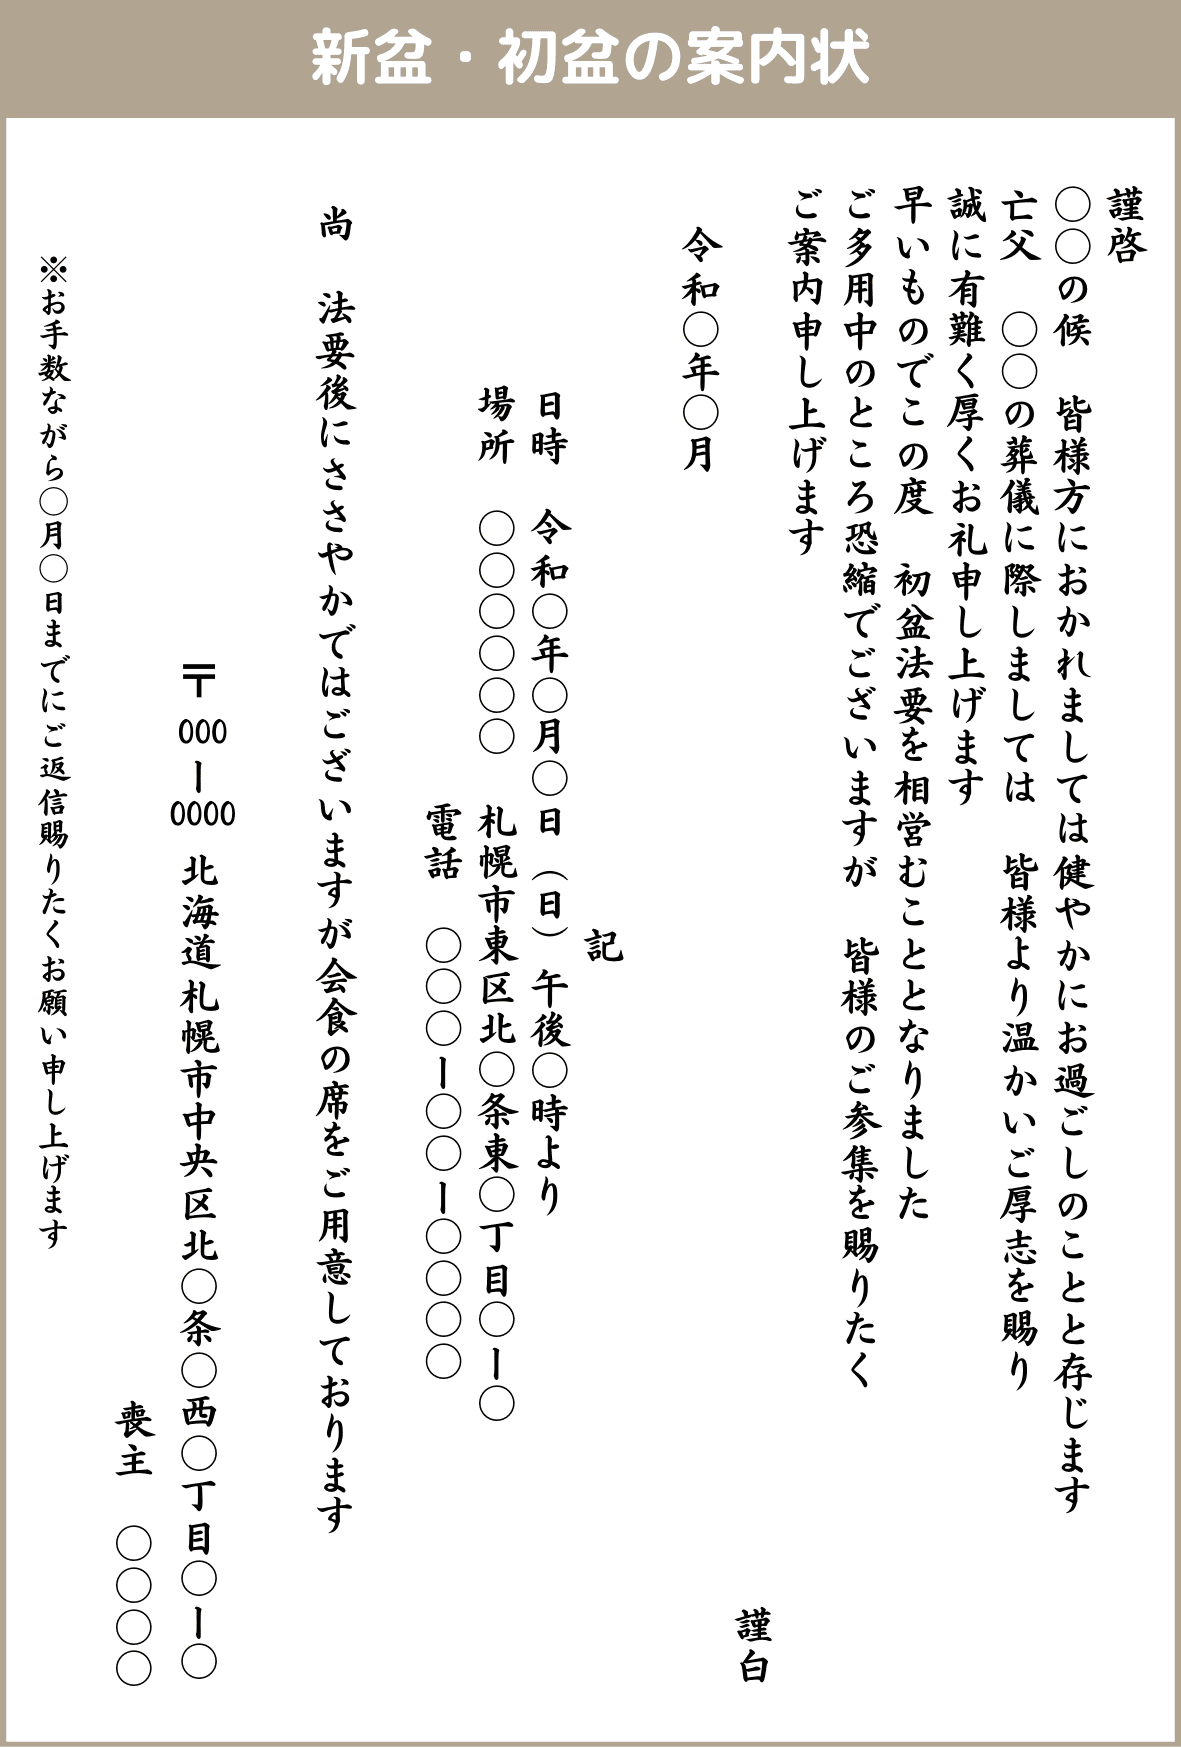 新盆・初盆の案内状
謹啓
〇〇の候　皆様方におかれましては健やかにお過ごしのことと存じます
亡父　〇〇の葬儀に際しましては　皆様より温かいご厚志を賜り
誠に有難く厚くお礼申し上げます
早いものでこの度　初盆法要を相営むこととなりました
ご多用中のところ恐縮でございますが　皆様のご参集を賜りたく
ご案内申し上げます
謹白
令和〇年〇月
記
日時　令和〇年〇月〇日（日）午後〇時より
場所　〇〇〇〇〇〇　札幌市東区北〇条東〇丁目〇ー〇
電話　〇〇〇ー〇〇ー〇〇〇〇
尚　法要後にささやかではございますが会食の席をご用意しております
〒000ー0000 北海道札幌市中央区北〇条〇西〇丁目〇ー〇
喪主　〇〇〇〇
※お手数ながら〇月〇日までにご返信賜りたくお願い申し上げます